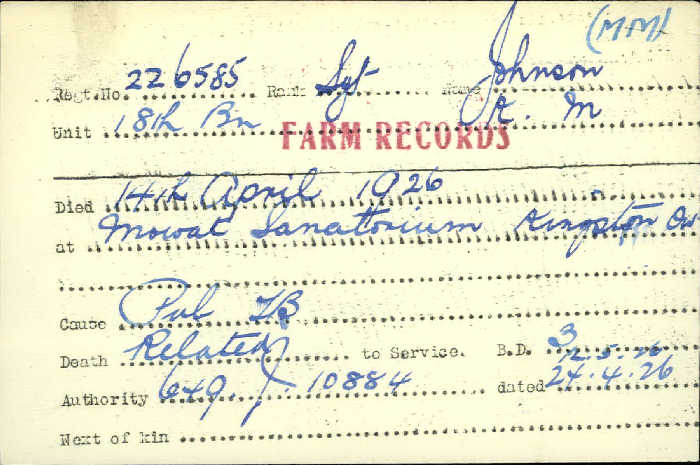 (MM)
Regt.No. 226585 Rank Sgt Name Johnson
Unit 18th Bn R. M
FARM RECORDS
Died 14th April 1926
at Mowat Sanatorium Kingston On
Cause Pul TB
Death Related to Service. B.D. 3
12.5.26
Authority 649. J 10884 dated 24.4.26
Next of kin